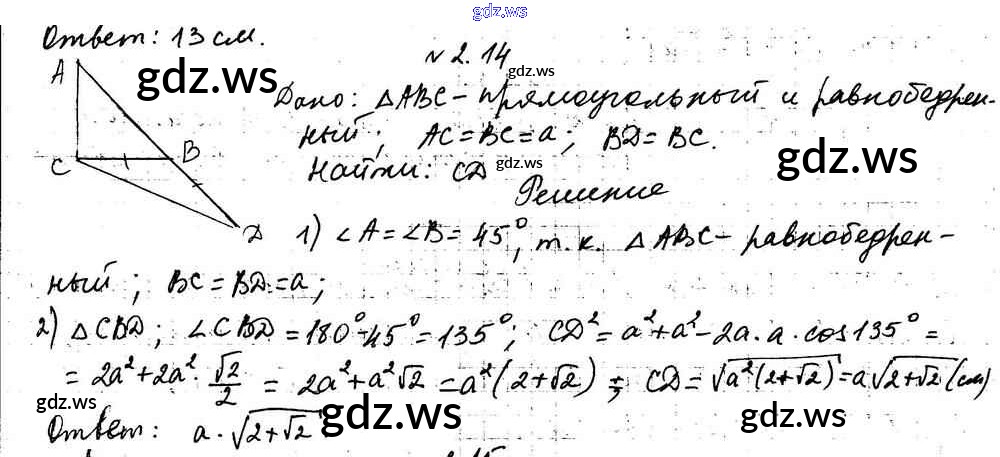 gdz.ws
Ответ: 13 см.
№ 2.14
A
gdz.ws
gdz.ws
Дано: △ABC - прямоугольный и равнобедрен-
ный; AC = BC = a; BD = BC.
C
B
gdz.ws
gdz.ws
Найти: CD
Решение
D
1) ∠A = ∠B = 45°, т.к. △ABC - равнобедрен-
ный; BC = BD = a;
2) △CBD; ∠CBD = 180° - 45° = 135°; CD² = a² + a² - 2a · a · cos 135° =
= 2a² + 2a² · √2/2 = 2a² + a²√2 = a²(2+√2); CD = √(a²(2+√2)) = a√(2+√2) (см)
gdz.ws
gdz.ws
gdz.ws
Ответ: a · √(2+√2)